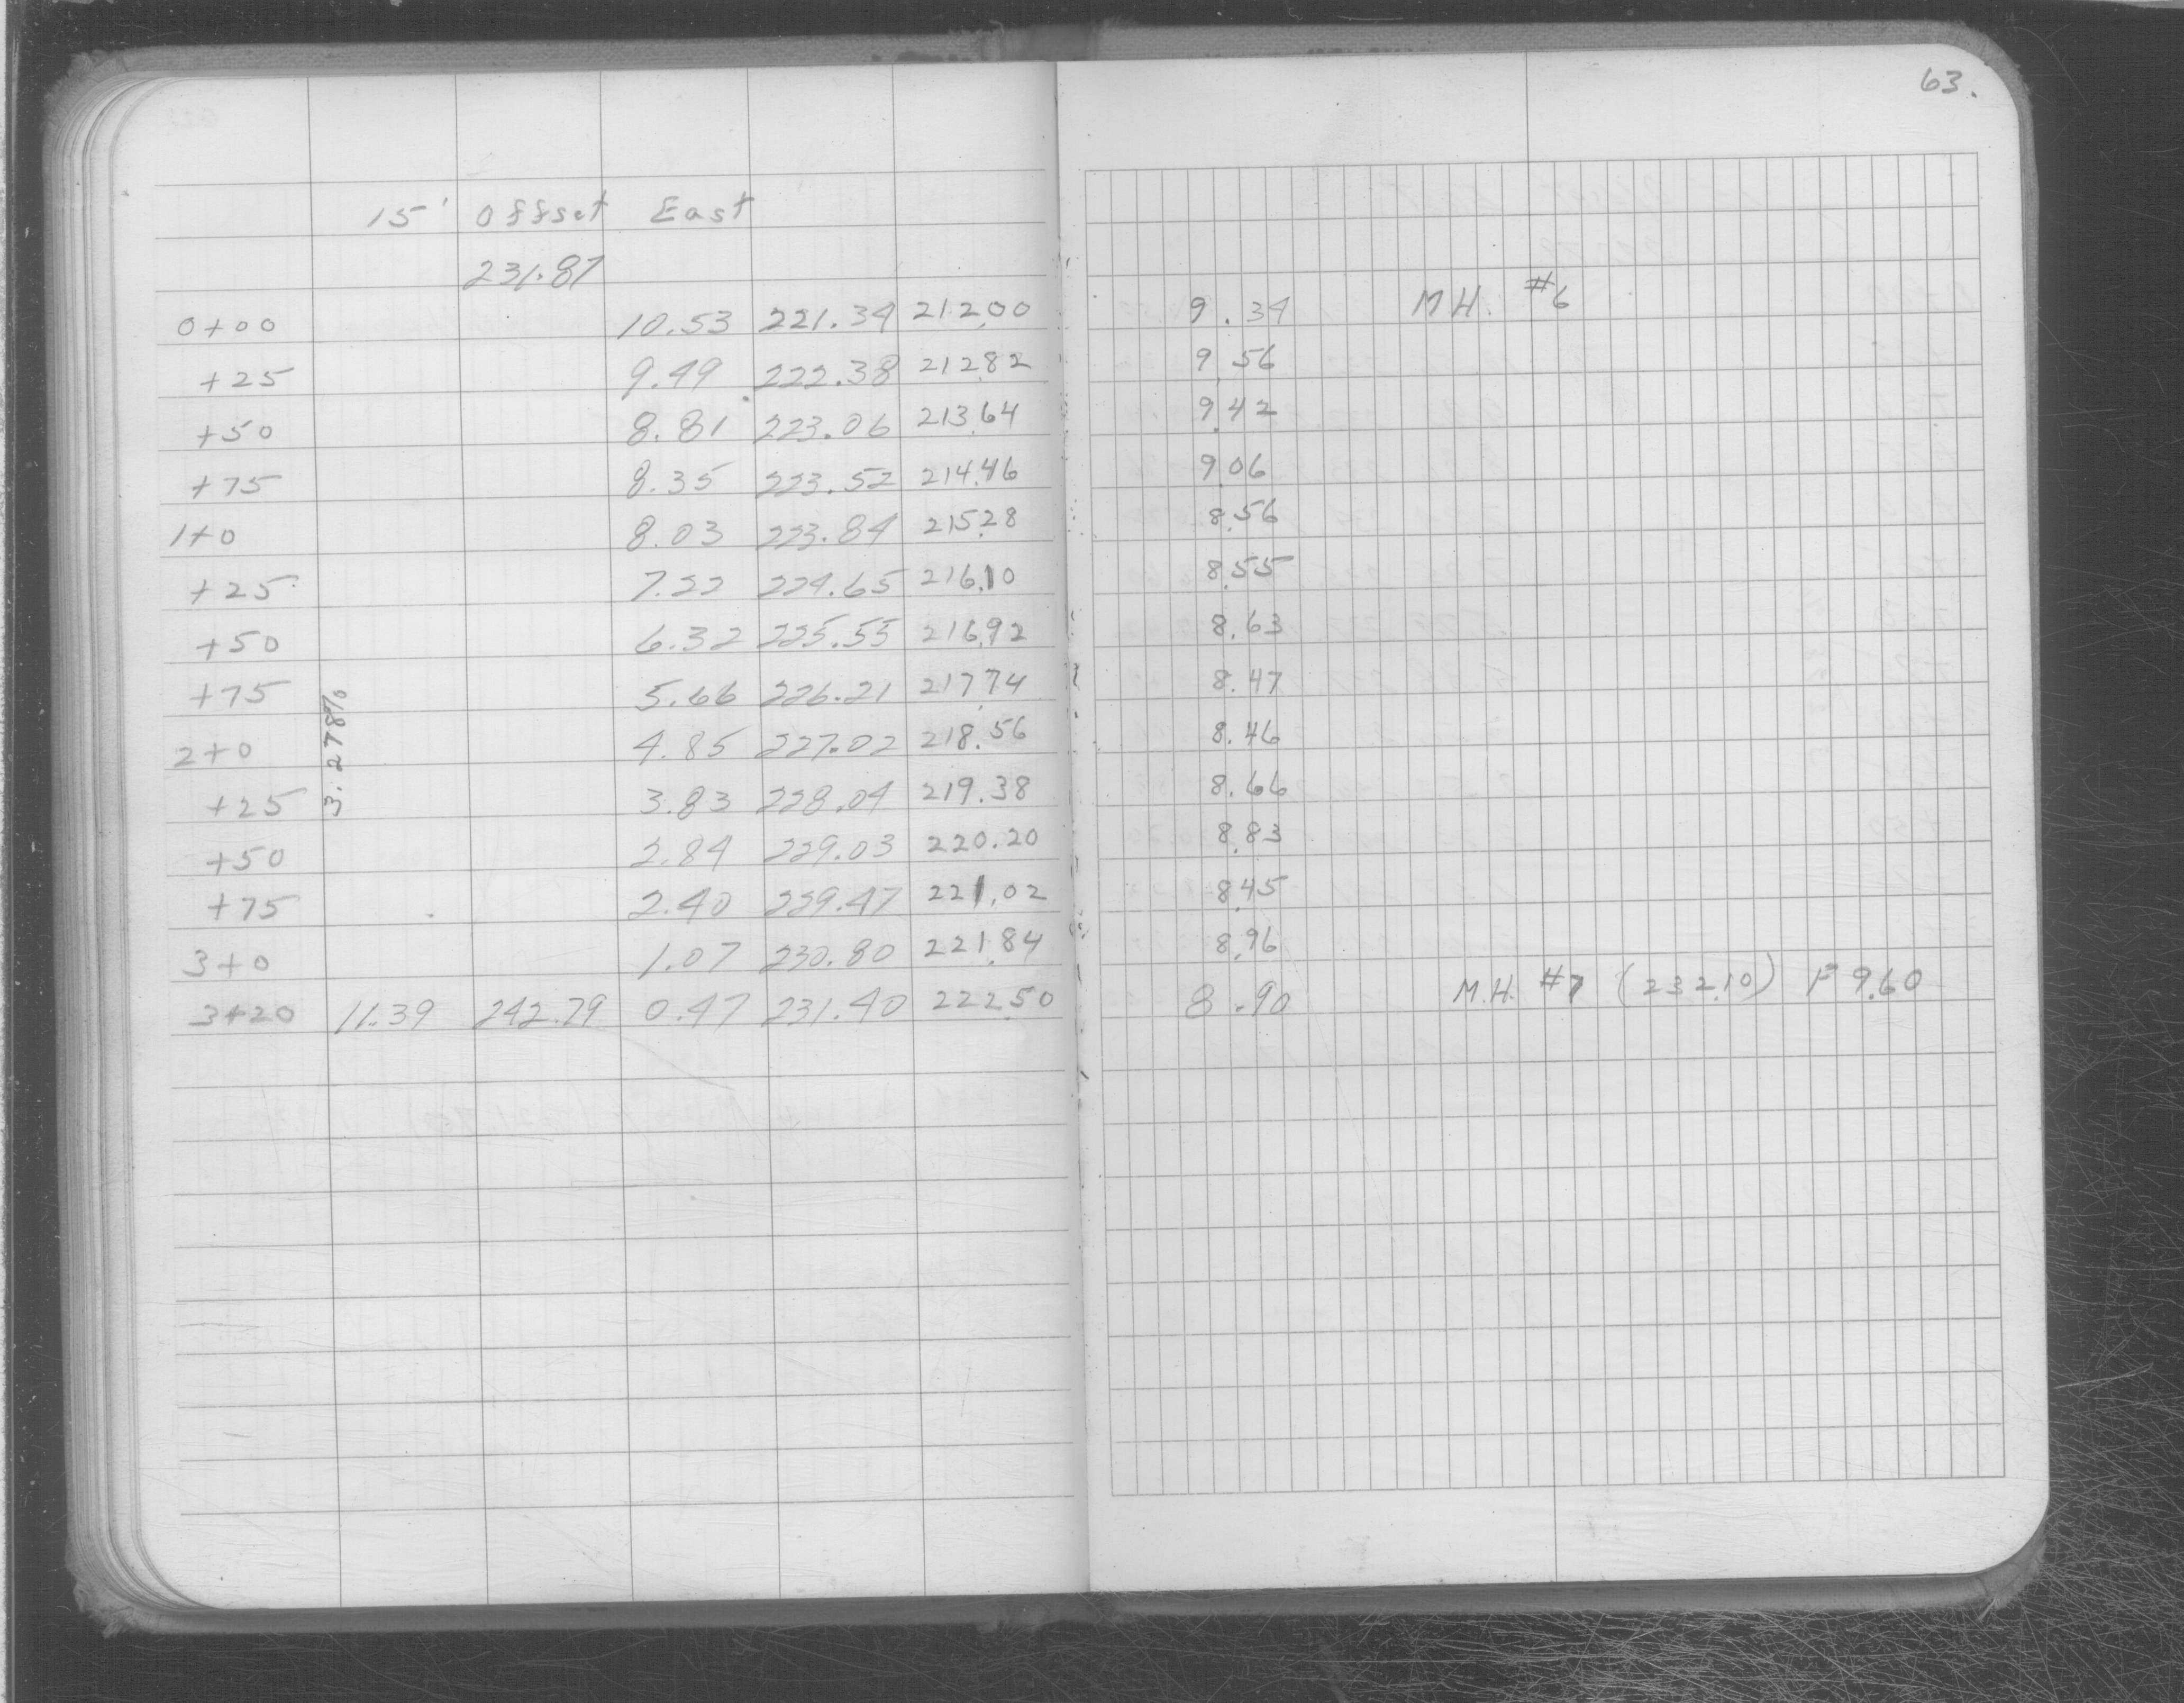 63.
15' Offset East
231.87
0+00 10.53 221.34 212.00 9.34 M.H. #6
+25 9.49 222.38 212.82 9.56
+50 8.81 223.06 213.64 9.42
+75 8.35 223.52 214.46 9.06
1+0 8.03 223.84 215.28 8.56
+25 7.22 224.65 216.10 8.55
+50 6.32 225.55 216.92 8.63
+75 5.66 226.21 217.74 8.47
3.278%
2+0 4.85 227.02 218.56 8.46
+25 3.83 228.04 219.38 8.66
+50 2.84 229.03 220.20 8.83
+75 2.40 229.47 221.02 8.45
3+0 1.07 230.80 221.84 8.96
3+20 11.39 242.79 0.47 231.40 222.50 8.90 M.H. #7 (232.10) F 9.60